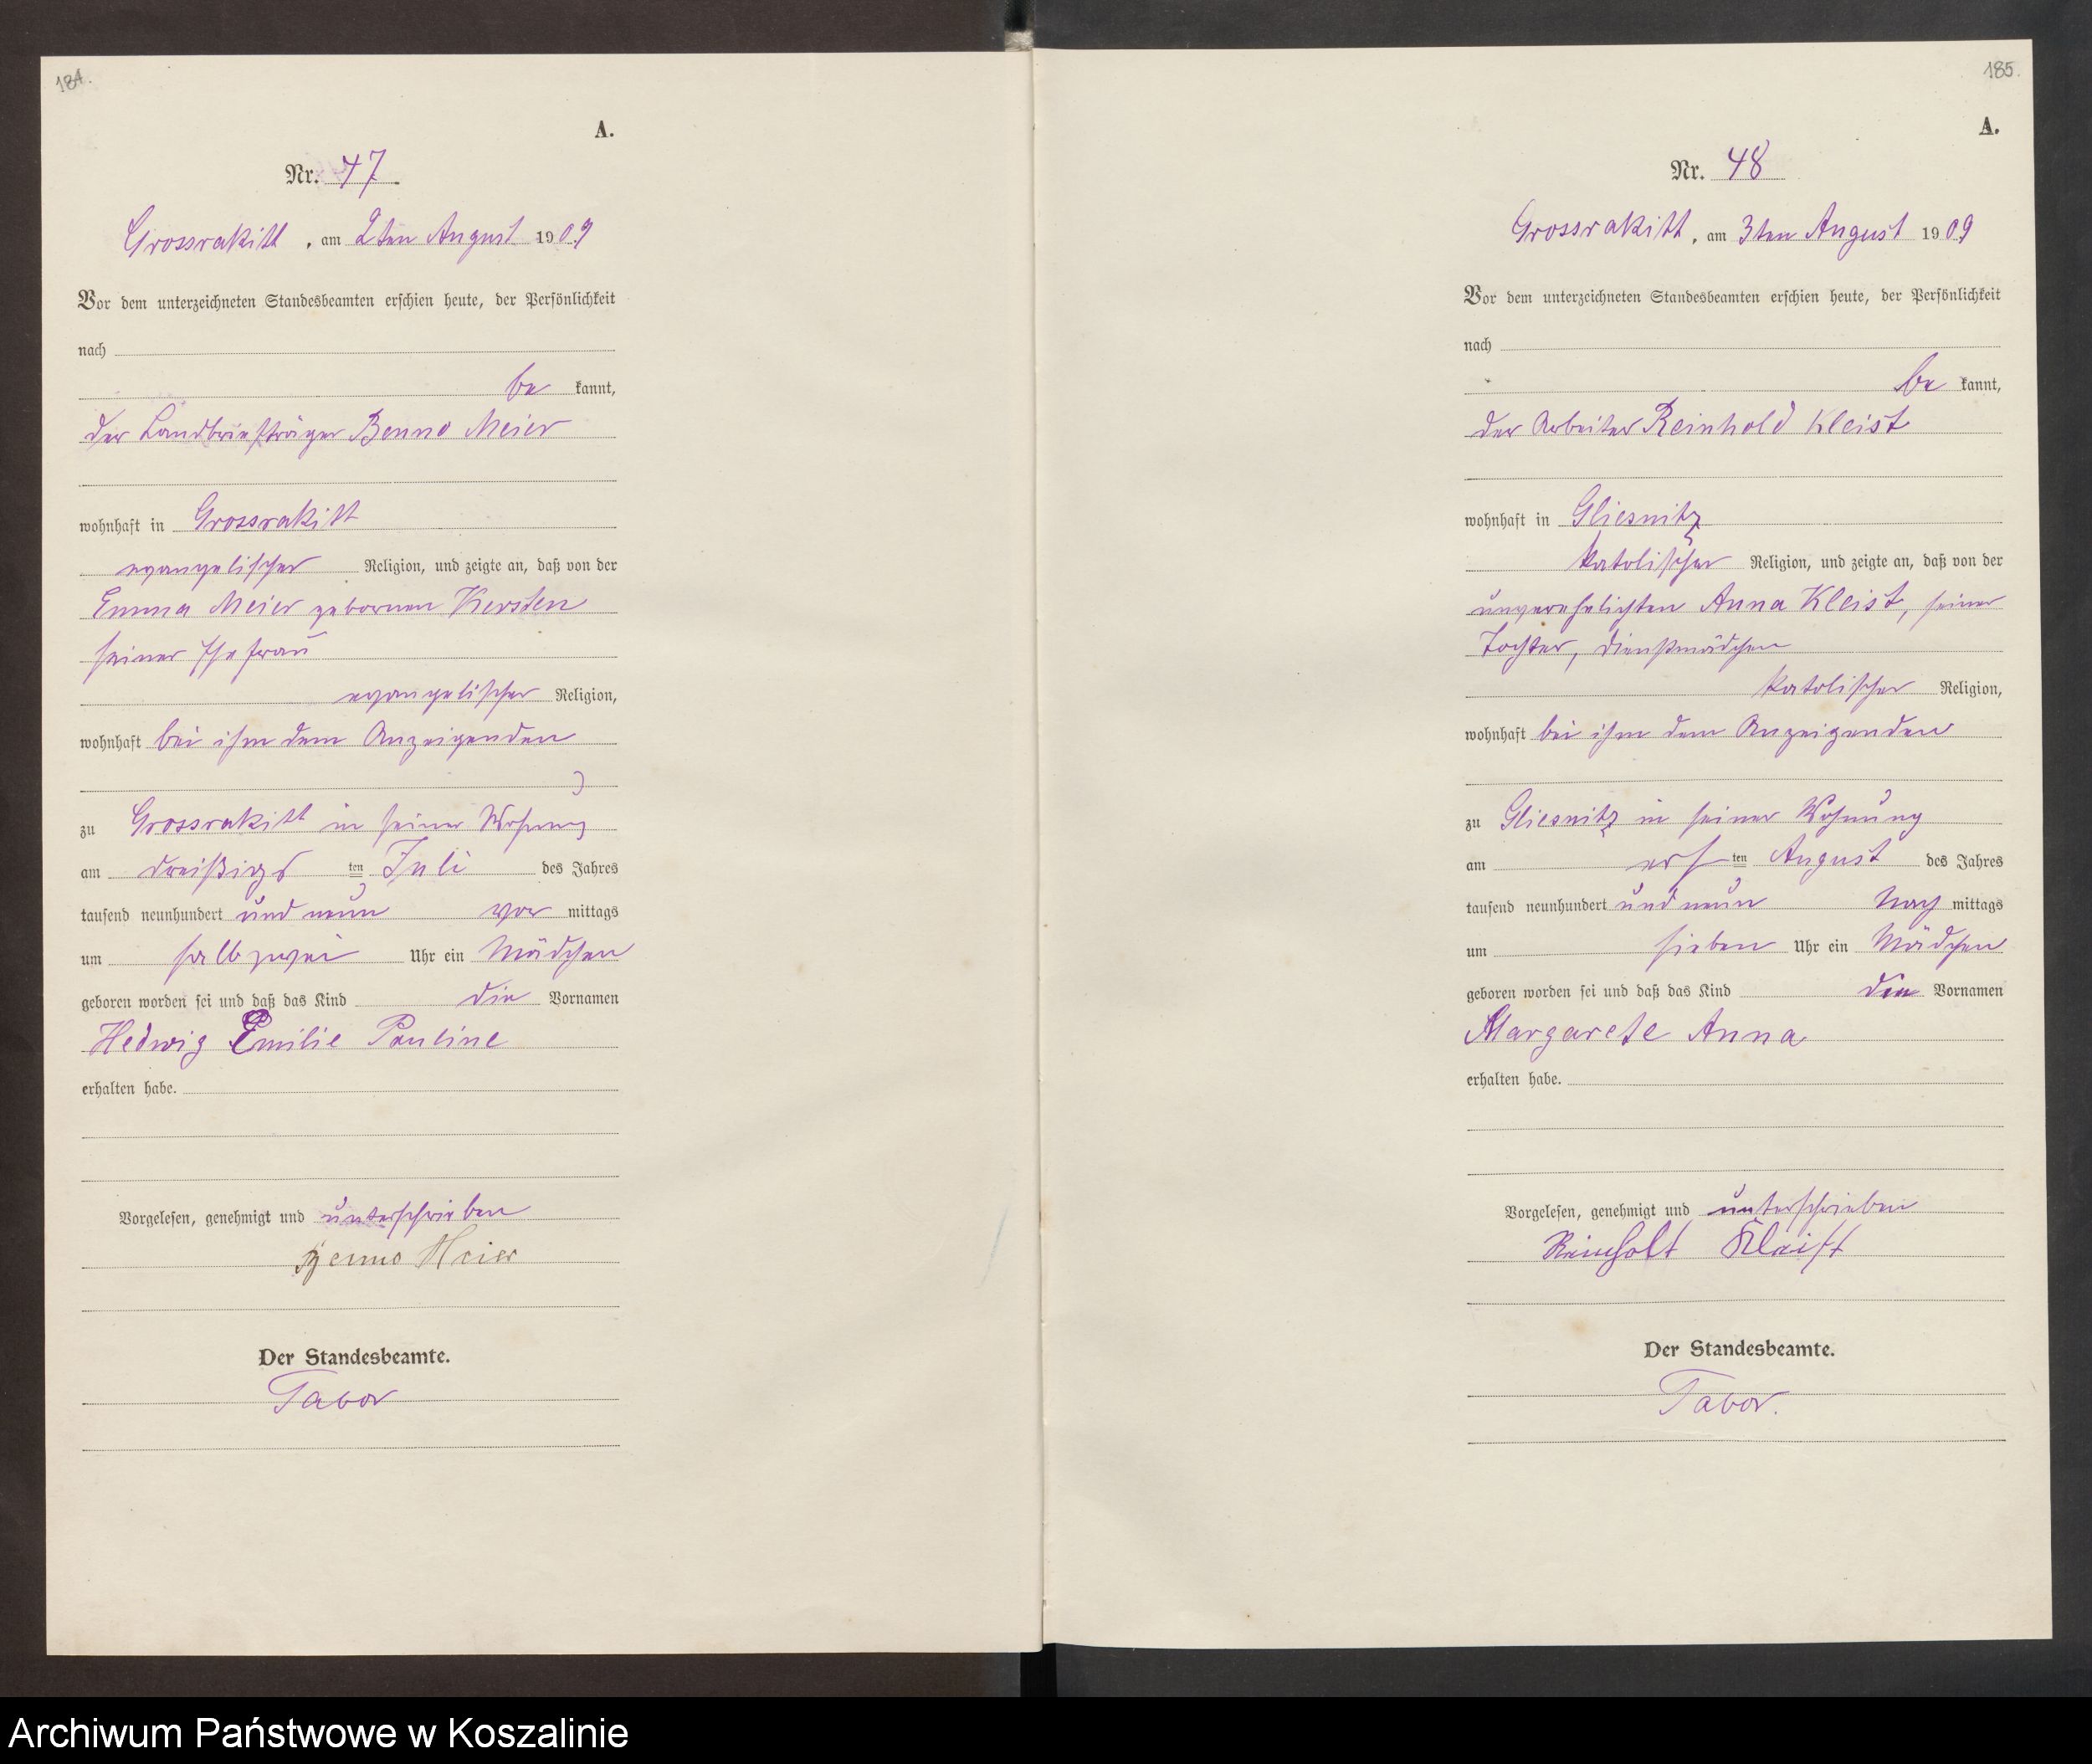 184.
A.
Nr. 47
Grossrakitt, am 2ten August 1909
Vor dem unterzeichneten Standesbeamten erschien heute, der Persönlichkeit
nach
be kannt,
der Landbriefträger Benno Meier
wohnhaft in Grossrakitt
evangelischer Religion, und zeigte an, daß von der
Emma Meier gebornen Kersten
seiner Ehefrau
evangelischer Religion,
wohnhaft bei ihm dem Anzeigenden
zu Grossrakitt in seiner Wohnung
am dreißigs ten Juli des Jahres
tausend neunhundert und neun vor mittags
um halb zwei Uhr ein Mädchen
geboren worden sei und daß das Kind die Vornamen
Hedwig Emilie Pauline
erhalten habe.
Vorgelesen, genehmigt und unterschrieben
Benno Meier
Der Standesbeamte.
Tabor
185.
A.
Nr. 48
Grossrakitt, am 3ten August 1909
Vor dem unterzeichneten Standesbeamten erschien heute, der Persönlichkeit
nach
be kannt,
der Arbeiter Reinhold Kleist
wohnhaft in Gliesnitz
katolischer Religion, und zeigte an, daß von der
unverehelichten Anna Kleist, seiner
Tochter, Dienstmädchen
katolischer Religion,
wohnhaft bei ihm dem Anzeigenden
zu Gliesnitz in seiner Wohnung
am ers ten August des Jahres
tausend neunhundert und neun Nach mittags
um sieben Uhr ein Mädchen
geboren worden sei und daß das Kind die Vornamen
Margarete Anna
erhalten habe.
Vorgelesen, genehmigt und unterschrieben
Reinholt Kleist
Der Standesbeamte.
Tabor.
Archiwum Państwowe w Koszalinie